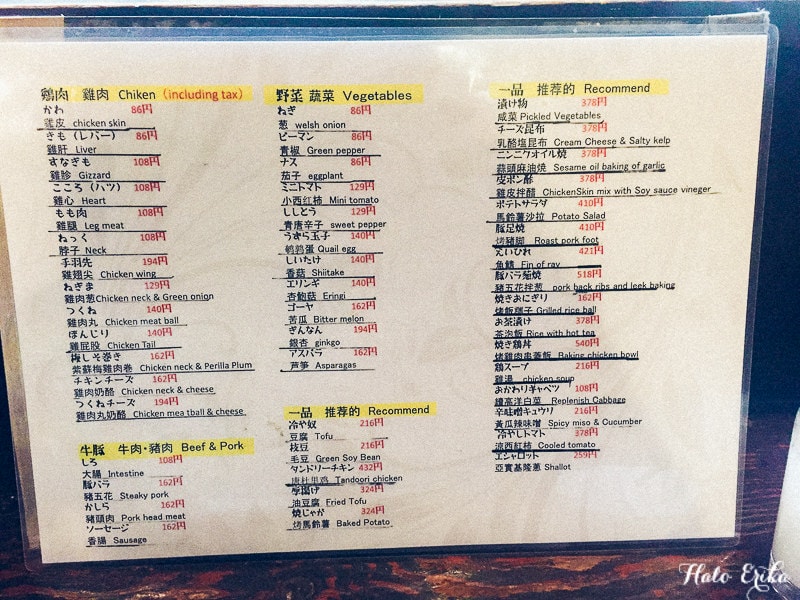 鶏肉 雞肉 Chiken (including tax)
かわ 86円
雞皮 chicken skin
きも (レバー) 86円
雞肝 Liver
すなぎも 108円
雞胗 Gizzard
こころ (ハツ) 108円
雞心 Heart
もも肉 108円
雞腿 Leg meat
ねっく 108円
脖子 Neck
手羽先 194円
雞翅尖 Chicken wing
ねぎま 129円
雞肉葱Chicken neck & Green onion
つくね 140円
雞肉丸 Chicken meat ball
ぼんじり 140円
雞屁股 Chicken Tail
梅しそ巻き 162円
紫蘇梅雞肉卷 Chicken neck & Perilla Plum
チキンチーズ 162円
雞肉奶酪 Chicken neck & cheese
つくねチーズ 194円
雞肉丸奶酪 Chicken mea tball & cheese
牛豚 牛肉・豬肉 Beef & Pork
しろ 108円
大腸 Intestine
豚バラ 162円
豬五花 Steaky pork
かしら 162円
豬頭肉 Pork head meat
ソーセージ 162円
香腸 Sausage
野菜 蔬菜 Vegetables
ねぎ 86円
葱 welsh onion
ピーマン 86円
青椒 Green pepper
ナス 86円
茄子 eggplant
ミニトマト 129円
小西红柿 Mini tomato
ししとう 129円
青唐辛子 sweet pepper
うずら玉子 140円
鹌鹑蛋 Quail egg
しいたけ 140円
香菇 Shiitake
エリンギ 140円
杏鮑菇 Eringi
ゴーヤ 162円
苦瓜 Bitter melon
ぎんなん 194円
銀杏 ginkgo
アスパラ 162円
芦筝 Asparagas
一品 推荐的 Recommend
冷や奴 216円
豆腐 Tofu
枝豆 216円
毛豆 Green Soy Bean
タンドリーチキン 432円
唐杜里鸡 Tandoori chicken
厚揚げ 324円
油豆腐 Fried Tofu
焼じゃが 324円
烤馬齡薯 Baked Potato
一品 推荐的 Recommend
漬け物 378円
咸菜 Pickled Vegetables
チーズ昆布 378円
乳酪塩昆布 Cream Cheese & Salty kelp
ニンニクオイル焼 378円
蒜頭麻油燒 Sesame oil baking of garlic
皮ポン酢 378円
雞皮拌醋 ChickenSkin mix with Soy sauce vineger
ポテトサラダ 410円
馬鈴薯沙拉 Potato Salad
豚足焼 410円
烤豬脚 Roast pork foot
えいひれ 421円
魚鰭 Fin of ray
豚バラ葱焼 518円
豬五花拌葱 pork back ribs and leek baking
焼きおにぎり 162円
烤飯糰子 Grilled rice ball
お茶漬け 378円
茶泡飯 Rice with hot tea
焼き鶏丼 540円
烤雞肉串蓋飯 Baking chicken bowl
鶏スープ 216円
雞湯 chicken soup
おかわりキャベツ 108円
續高洋白菜 Replenish Cabbage
辛味噌キュウリ 216円
黃瓜辣味噌 Spicy miso & Cucumber
冷やしトマト 378円
涼西紅柿 Cooled tomato
エシャロット 259円
亞實基隆蔥 Shallot
Hato Erika